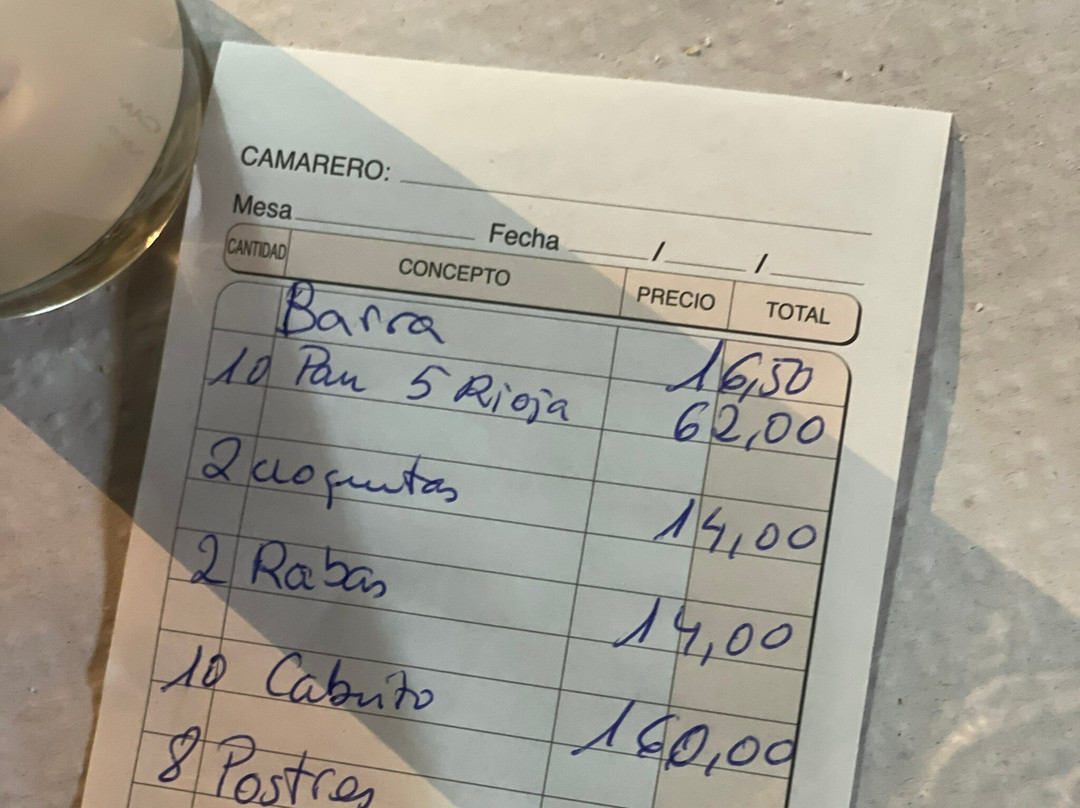 CAMARERO:
Mesa
Fecha / /
CANTIDAD CONCEPTO PRECIO TOTAL
Barra 16,50
10 Pan 5 Rioja 62,00
2 croquetas 14,00
2 Rabas 14,00
10 Cabrito 160,00
8 Postres